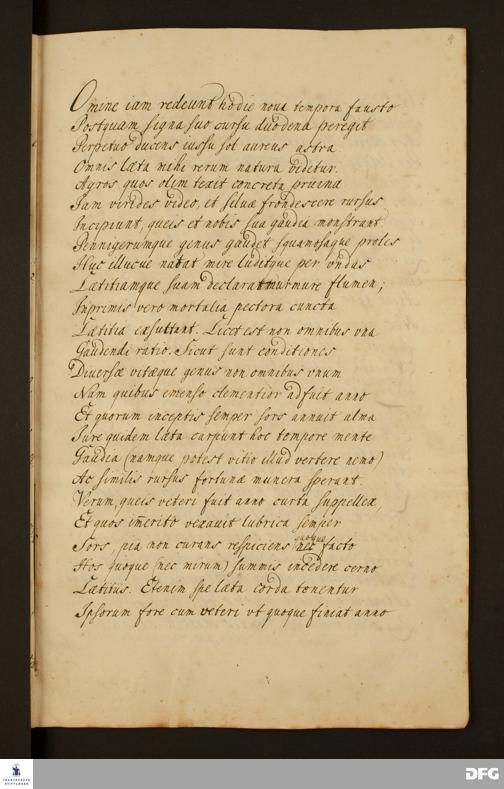 Omine iam redeunt hodie noua tempora fausto
Postquam signa suo cursu duodena peregit
Perpetuo ducens iussu sol aureus astra
Omnis læta mihi rerum natura videtur.
Agros, quos olim texit concreta pruina
Iam virides video, et siluæ frondescere rursus
Incipiunt, queis et nobis sua gaudia monstrant
Pennigerumque genus gaudet squamosaque proles
Huc illucue natat mire luditque per vndas
Lætitiamque suam declarat murmure flumen;
Inprimis vero mortalia pectora cuncta
Lætitia exsultant. Licet est non omnibus vna
Gaudendi ratio. Sicut sunt conditiones
Diuersæ vitæque genus non omnibus vnum
Nam quibus emenso clementior adfuit anno
Et quorum inceptis semper sors annuit alma
Iure quidem læta carpunt hoc tempore mente
Gaudia (namque potest vitio illud vertere nemo)
Ac similis rursus fortunæ munera sperant.
Verum, queis veteri fuit anno curta suppellex,
Et quos im̄erito vexauit lubrica semper
Sors, pia non curans respiciens quoque nec facto
Hos quoque (nec mirum) summis incedere cerno
Lætitiis. Etenim spe læta corda tenentur
Ipsorum fore cum veteri vt quoque finiat anno
FRANCKESCHE
STIFTUNGEN
DFG